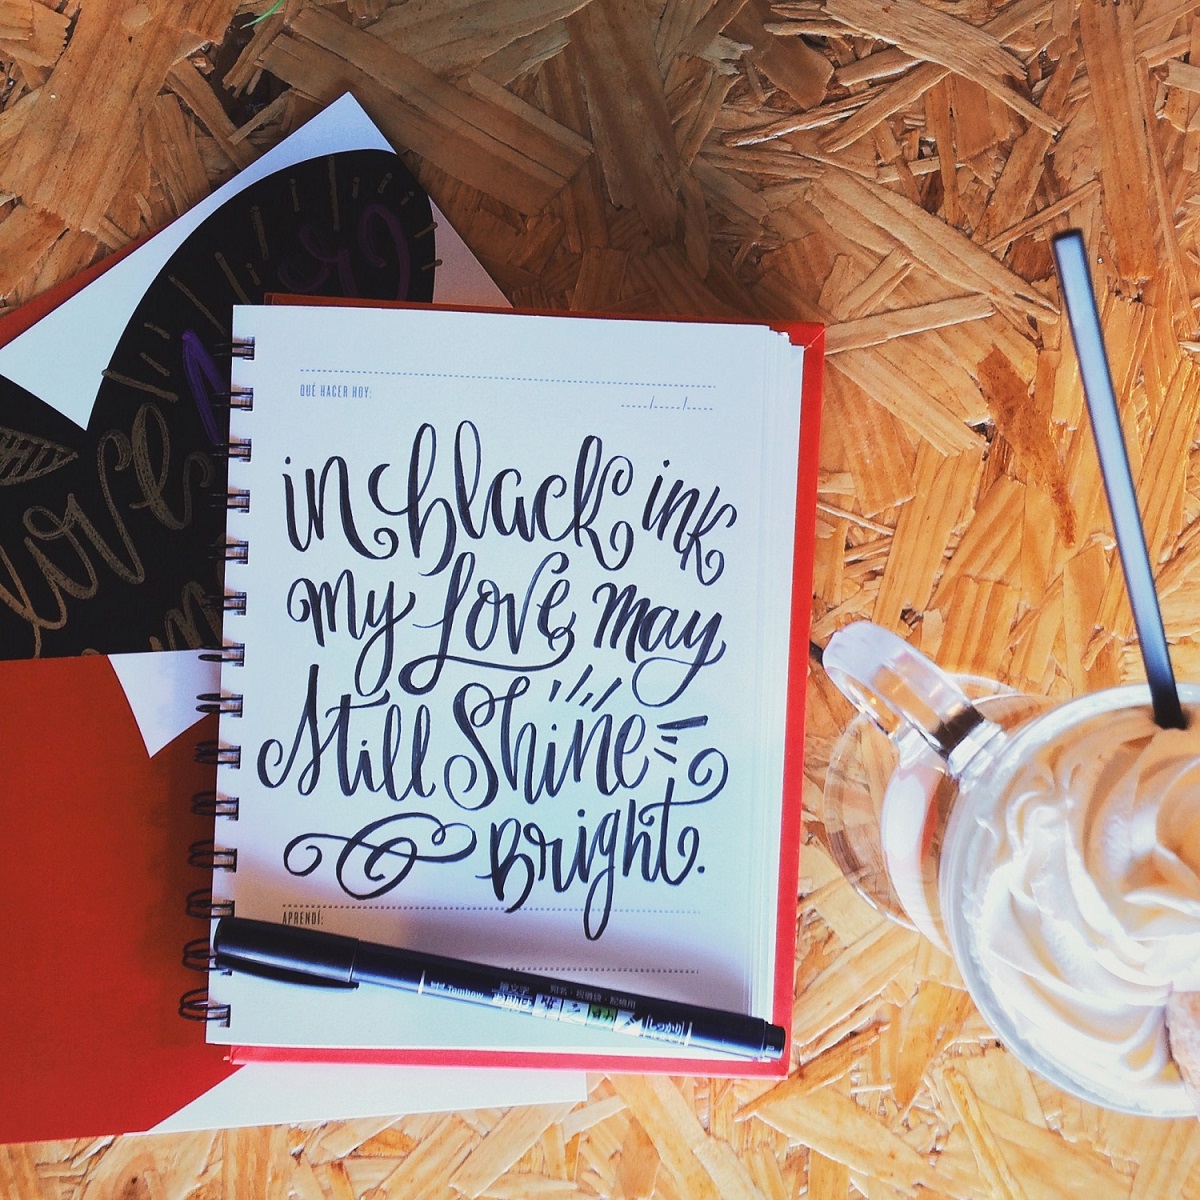 QUÉ HACER HOY:
in black ink
my Love may
Still Shine
Bright.
APRENDÍ:
Love
Tombow